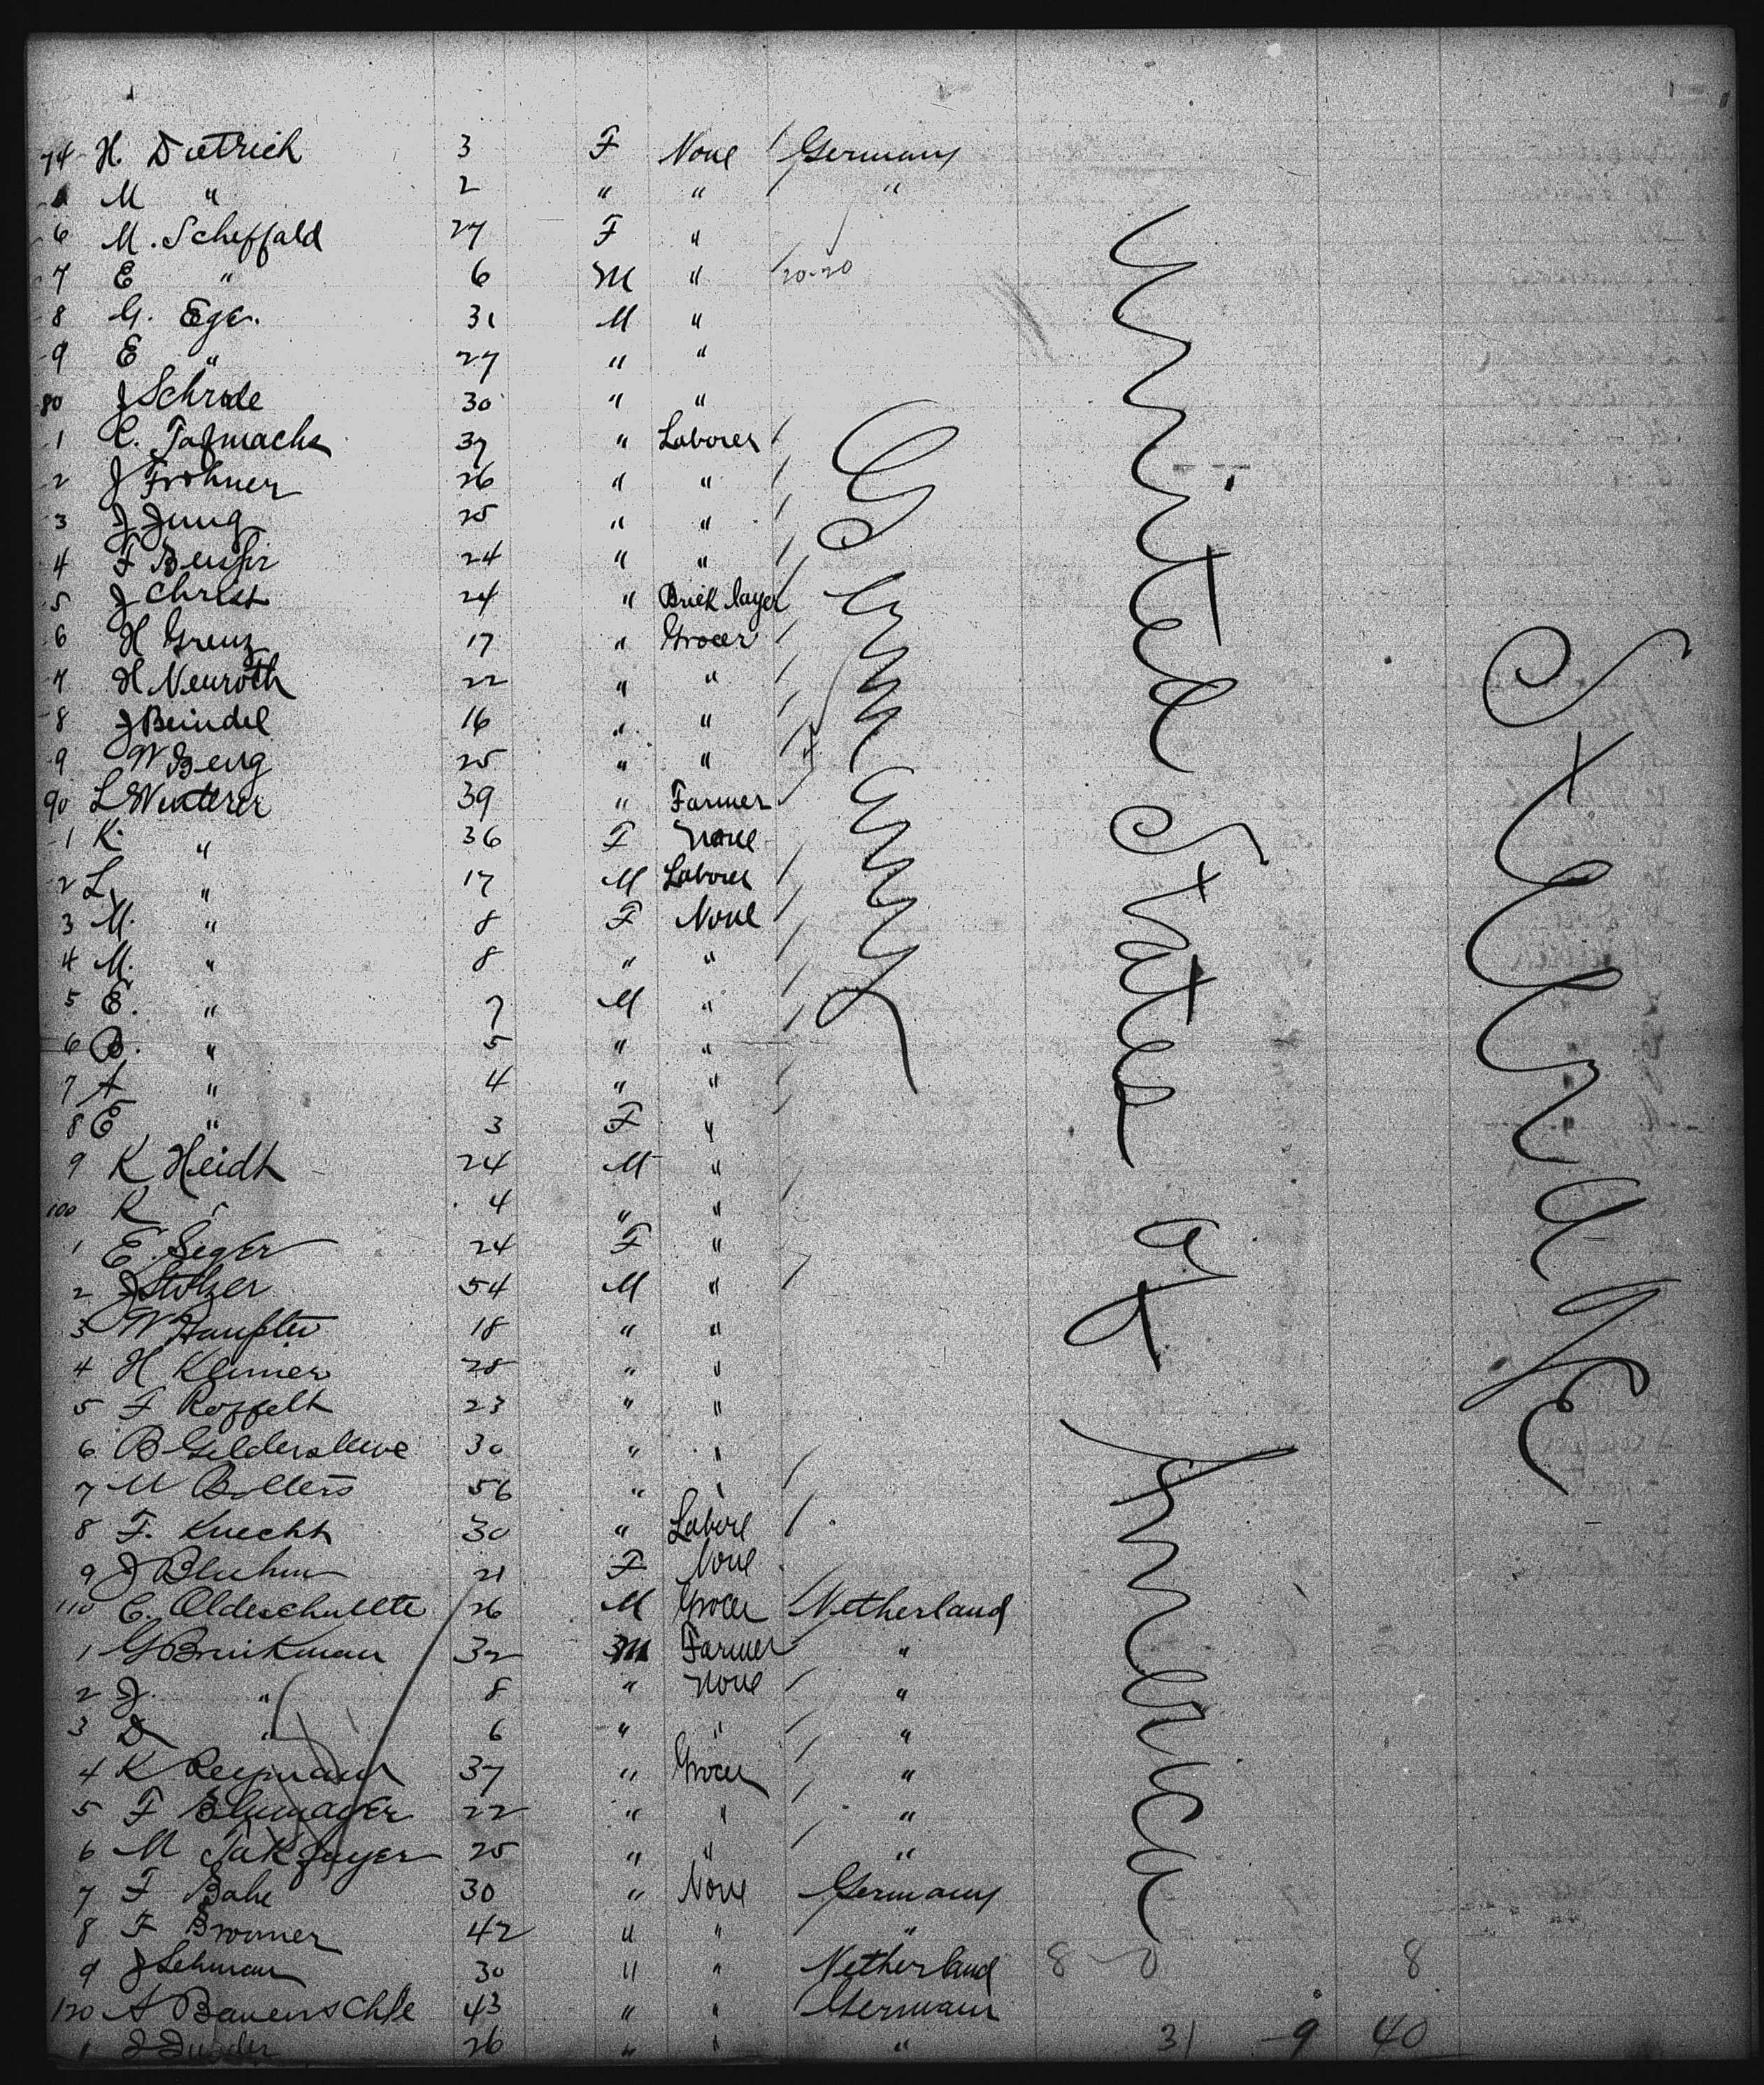 74 H. Dietrich 3 F None Germany
M " 2 " " "
6 M. Scheffald 27 F "
7 E " 6 M " 20-20
8 G. Ege. 31 M "
9 E " 27 " "
80 J Schrode 30 " "
1 C. 37 " Laborer
2 J Frohner 26 " "
3 J Jung 25 " "
4 F 24 " "
5 J Christ 24 " Brick layer
6 H Grenz 17 " Grocer
7 H Neuroth 22 " "
8 J Beindel 16 " "
9 W Berg 25 " "
90 L Winterer 39 " Farmer
1 K. " 36 F None
2 L. " 17 M Laborer
3 M. " 8 F None
4 M. " 8 " "
5 E. " 7 M "
6 B. " 5 " "
7 A " 4 " "
8 E " 3 F "
9 K Heidt 24 M "
100 K " 4 " "
1 E. Seger 24 F "
2 J Stolzer 54 M "
3 W 18 " "
4 H Klemer 28 " "
5 F Roffelt 23 " "
6 B Gildersleeve 30 " "
7 M Bollers 56 " "
8 F. Knecht 30 " Labore
9 J Bluhm 21 F None
110 C. Oldeschulte 26 M Grocer Netherland
1 G Brinkman 32 M Farmer "
2 J. " 8 " None "
3 D " 6 " " "
4 K 37 " Grocer "
5 F 22 " " "
6 M 25 " " "
7 F Bahe 30 " None Germany
8 F Bronner 42 " " "
9 J Lehman 30 " " Netherland 8 0 8
120 A Bauerschle 43 " " German
1 J 26 " " " 31 9 40
Germany
United States of America
Steerage